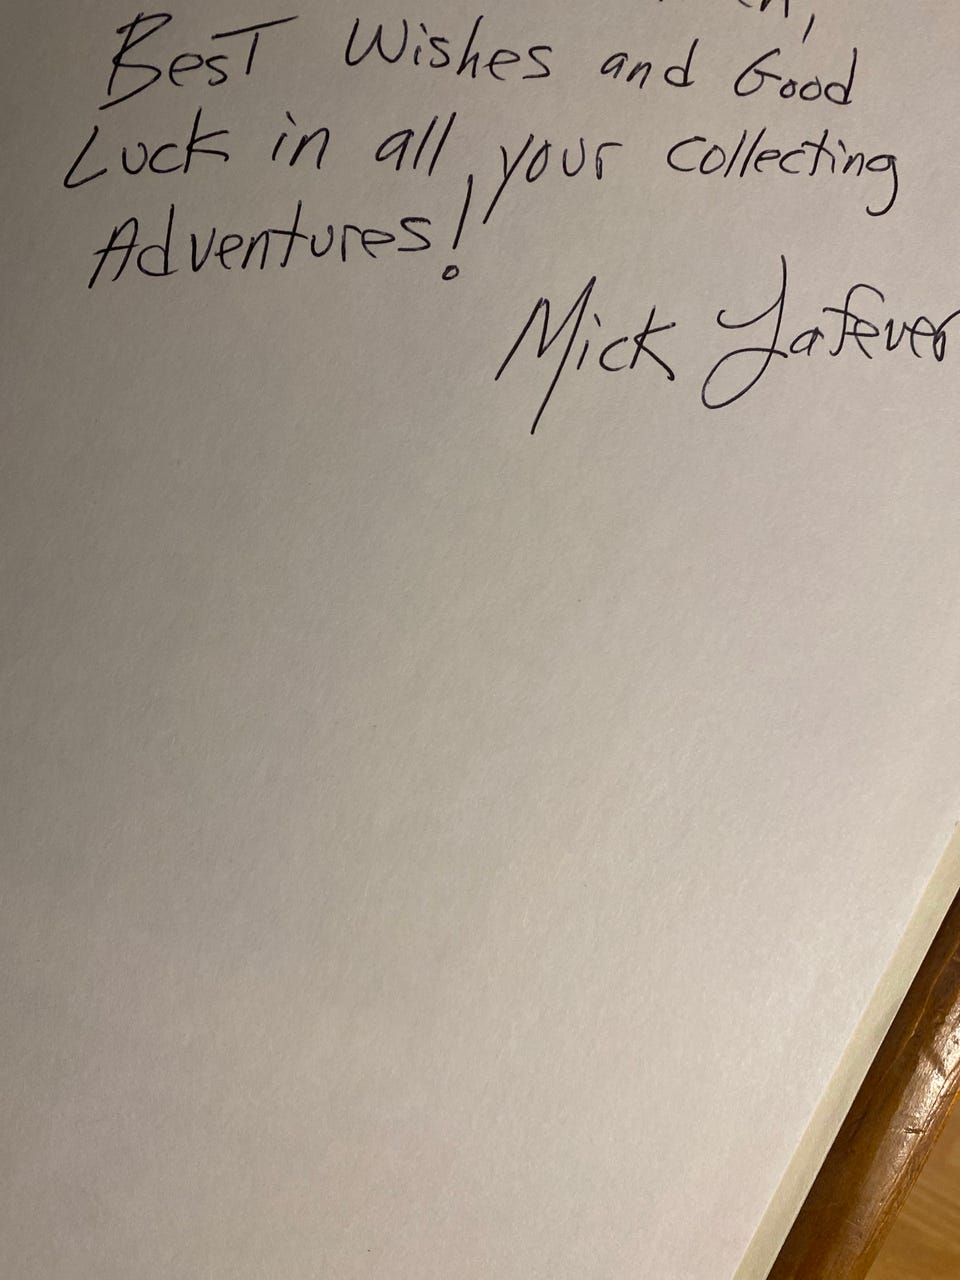 Best Wishes and Good
Luck in all your collecting
Adventures!
Mick Lafever